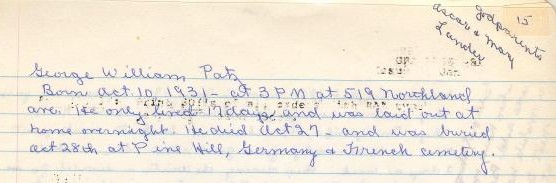 15
godparents
Oscar & Mary
Lander
George William Patz
Born Oct. 10, 1931 - at 3 P M at 519 Northland
ave. He only lived 17 days, and was laid out at
home overnight. He died Oct 27 - and was buried
Oct 28th at Pine Hill, Germany & French cemetery.